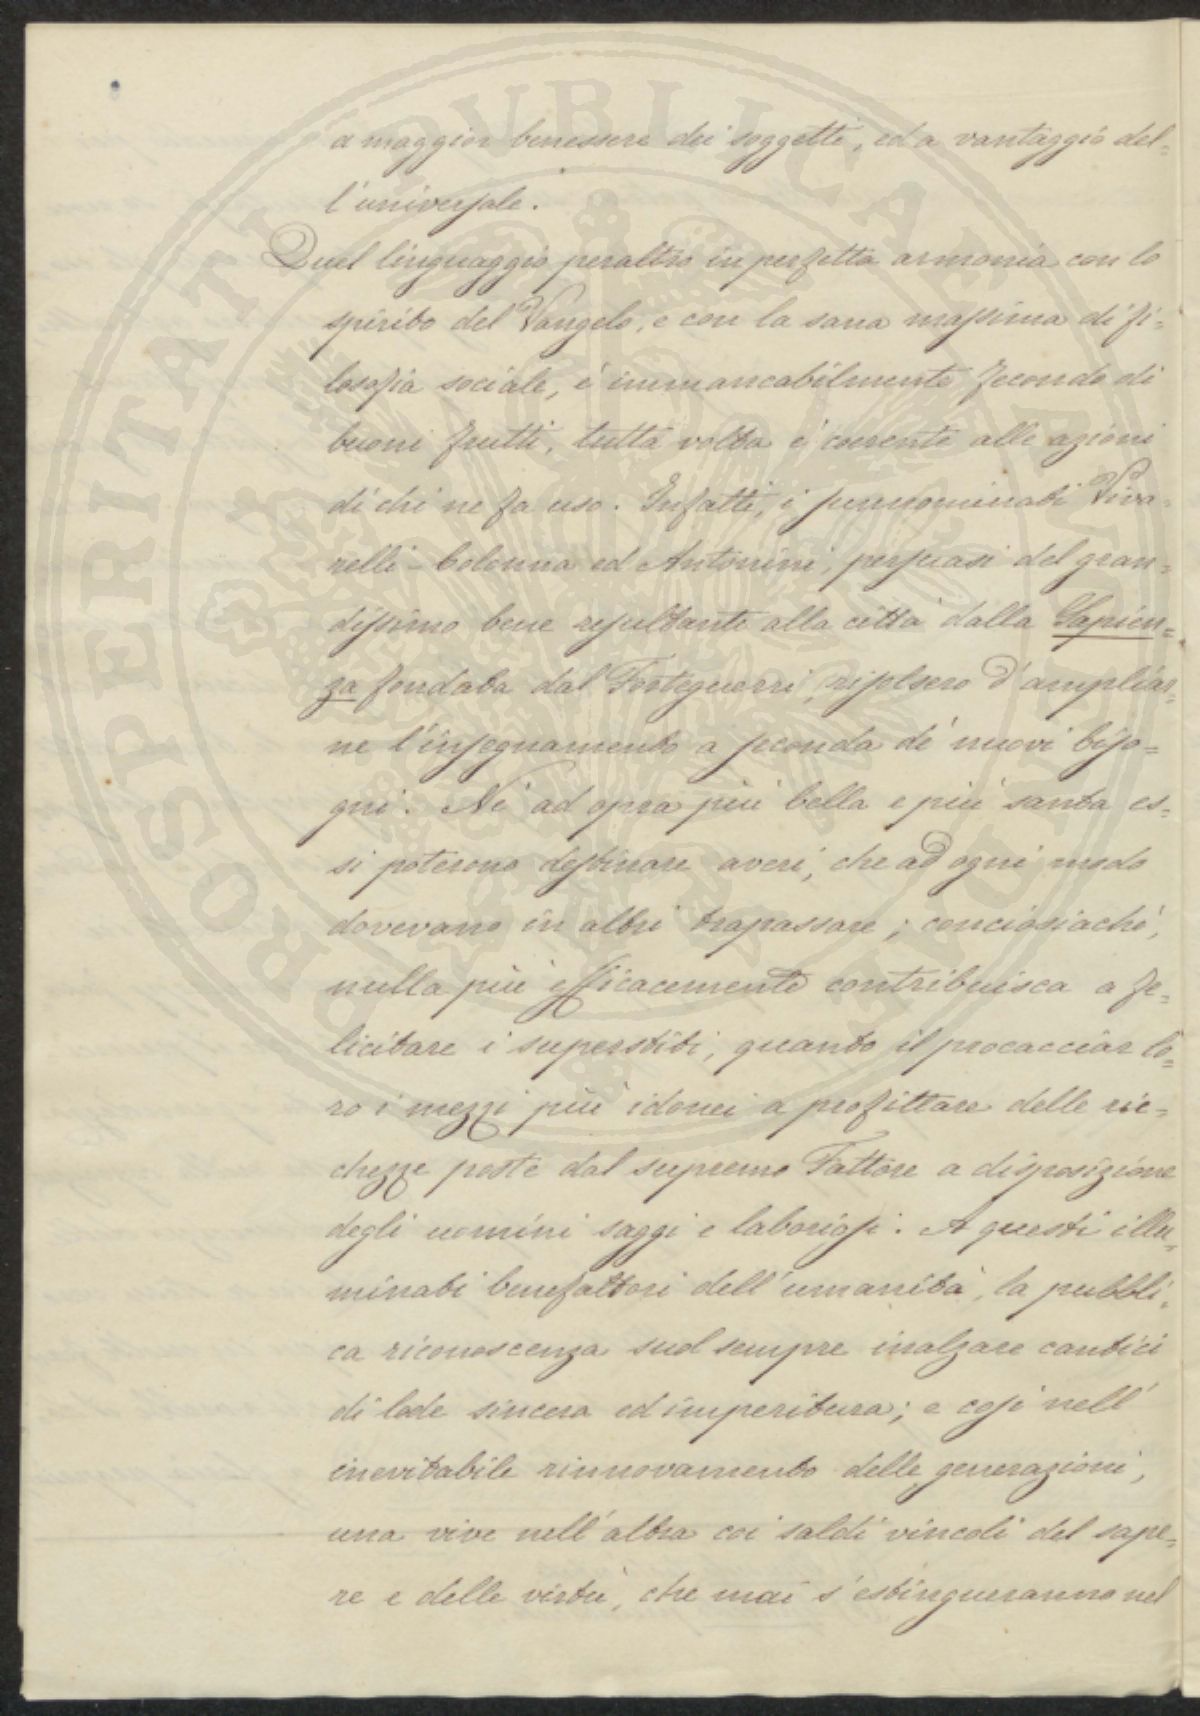 a maggior benessere dei soggetti, ed a vantaggio del=
l'universale.
Quel linguaggio peraltro in perfetta armonia con lo
spirito del Vangelo, e con la sana massima di fi=
losofia sociale, é immancabilmente fecondo di
buoni frutti, tutta volta é coerente alle azioni
di chi ne fa uso. Infatti, i prenominati Viva=
relli-Colonna ed Antonini, persuasi del gran=
dissimo bene resultante alla città dalla Sapien=
za fondata dal Forteguerri, risolsero d'ampliar=
ne l'insegnamento a seconda de' nuovi biso=
gni. Né ad opra piú bella e piú santa es=
si poterono destinare averi, che ad ogni modo
dovevano in altri trapassare; conciosiaché,
nulla piú efficacemente contribuisca a fe=
licitare i superstiti, quanto il procacciar lo=
ro i mezzi piú idonei a profittare delle ric=
chezze poste dal supremo Fattore a disposizione
degli uomini saggi e laboriosi. A questi illu=
minati benefattori dell'umanità, la pubbli=
ca riconoscenza suol sempre inalzare cantici
di lode sincera ed imperitura; e cosí nell'
inevitabile rinnovamento delle generazioni,
una vive nell'altra coi saldi vincoli del sape=
re e delle virtú, che mai s'estingueranno nel
PROSPERITATI PVBLICAE